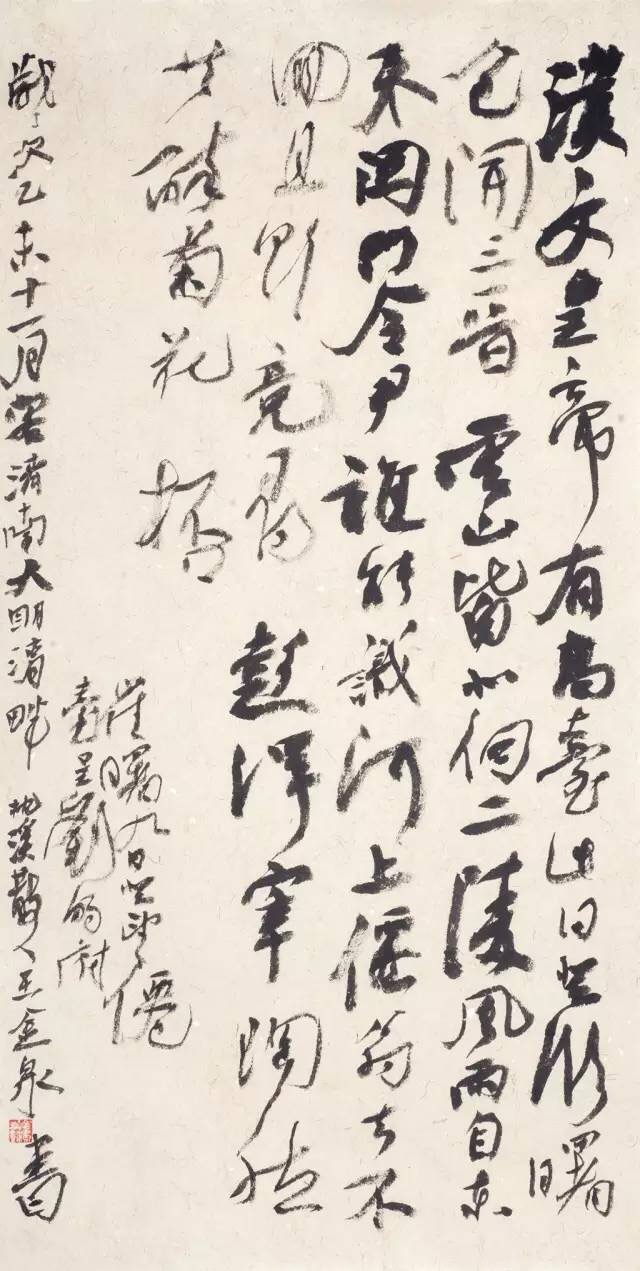 漢文皇帝有高臺此日登臨曙
色開三晉雲山皆北向二陵風雨自東
來關門令尹誰能識河上僊翁去不
回且欲竟尋彭澤宰陶然
共醉菊花杯
崔曙九日登望僊
臺呈劉明府
歲次乙未十一月客濟南大明湖畔 溪散人王金泉書